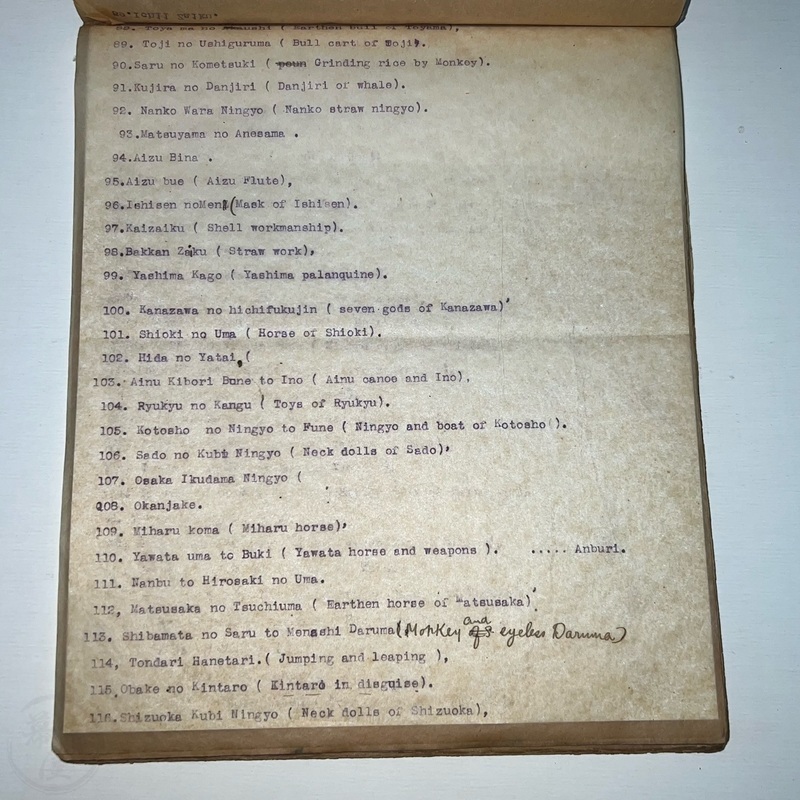 Ichii Zaiku.
88. Toya ma no Tsuchi ( Earthen bull of Tayama),
89. Toji no Ushiguruma ( Bull cart of Toji).
90.Saru no Kometsuki ( Grinding rice by Monkey).
91.Kujira no Danjiri ( Danjiri or whale).
92. Nanko Wara Ningyo ( Nanko straw ningyo).
93.Matsuyama no Anesama .
94.Aizu Bina .
95.Aizu bue ( Aizu Flute),
96.Ishisen noMen (Mask of Ishisen).
97.Kaizaiku ( Shell workmanship).
98.Bakkan Zaiku ( Straw work),
99. Yashima Kago ( Yashima palanquine).
100. Kanazawa no hichifukujin ( seven gods of Kanazawa)'
101. Shioki no Uma ( Horse of Shioki).
102. Hida no Yatai, (
103. Ainu Kibori Bune to Ino ( Ainu canoe and Ino),
104. Ryukyu no Kangu ( Toys of Ryukyu).
105. Kotosho no Ningyo to Fune ( Ningyo and boat of Kotosho ).
106. Sado no Kubi Ningyo ( Neck dolls of Sado)'
107. Osaka Ikudama Ningyo (
108. Okanjake.
109. Miharu koma ( Miharu horse)'
110. Yawata uma to Buki ( Yawata horse and weapons ). ..... Anburi.
111. Nanbu to Hirosaki no Uma.
112, Matsusaka no Tsuchiuma ( Earthen horse of Matsusaka)'
113. Shibamata no Saru to Menashi Daruma (Monkey and eyeless Daruma)
114, Tondari Hanetari.( Jumping and leaping ),
115.Obake no Kintaro ( Kintaro in disguise).
116.Shizuoka Kubi Ningyo ( Neck dolls of Shizuoka),